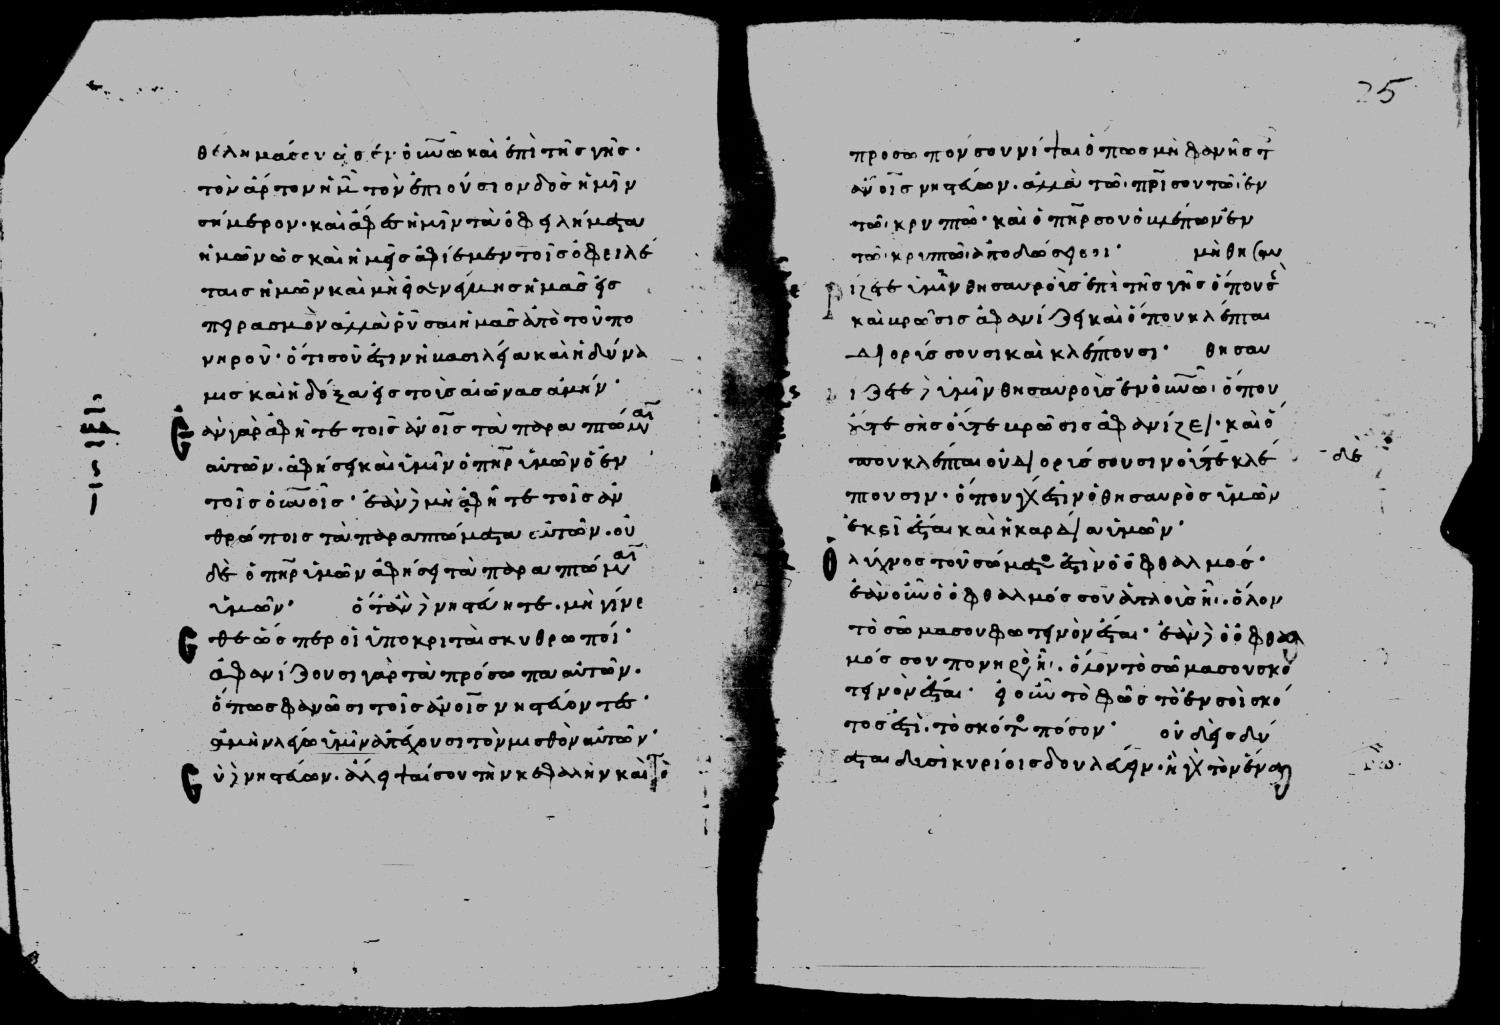 θέλημά σου ὡς ἐν οὐνῶ καὶ ἐπὶ τῆς γῆς·
τὸν ἄρτον ἡμῶ τὸν ἐπιούσιον δὸς ἡμῖν
σήμερον· καὶ ἄφες ἡμῖν τὰ ὀφειλήματα
ἡμῶν ὡς καὶ ἡμεῖς ἀφίεμεν τοῖς ὀφειλέ
ταις ἡμῶν καὶ μὴ εἰσενέγκης ἡμᾶς εἰς
πειρασμὸν ἀλλὰ ῥῦσαι ἡμᾶς ἀπὸ τοῦ πο
νηροῦ· ὅτι σοῦ ἐστιν ἡ βασιλεία καὶ ἡ δύνα
μις καὶ ἡ δόξα εἰς τοὺς αἰῶνας ἀμήν·
Ἐὰν γὰρ ἀφῆτε τοῖς ἀνοις τὰ παραπτώματα
αὐτῶν· ἀφήσει καὶ ὑμῖν ὁ πηρ ὑμῶν ὁ ἐν
τοῖς οὐνοις· ἐὰν δὲ μὴ ἀφῆτε τοῖς ἀν
θρώποις τὰ παραπτώματα αὐτῶν· οὐ
δὲ ὁ πηρ ὑμῶν ἀφήσει τὰ παραπτώματα
ὑμῶν· ὅταν δὲ νηστεύητε· μὴ γίνε
σθε ὥσπερ οἱ ὑποκριταὶ σκυθρωποί·
ἀφανίζουσι γὰρ τὰ πρόσωπα αὐτῶν·
ὅπως φανῶσι τοῖς ἀνοις νηστεύοντες·
ἀμὴν λέγω ὑμῖν ἀπέχουσι τὸν μισθὸν αὐτῶν·
Σὺ δὲ νηστεύων· ἄλειψαί σου τὴν κεφαλὴν καὶ τὸ
25
πρόσωπόν σου νίψαι ὅπως μὴ φανῆς τ
ἀνοις νηστεύων· ἀλλὰ τῶ πρι σου τῶ ἐν
τῶ κρυπτῶ· καὶ ὁ πηρ σου ὁ βλέπων ἐν
τῶ κρυπτῶ ἀποδώσει σοι· μὴ θησαυ
ρίζετε ὑμῖν θησαυροὺς ἐπὶ τῆς γῆς ὅπου σ
καὶ βρῶσις ἀφανίζει καὶ ὅπου κλέπται
διορύσσουσι καὶ κλέπτουσι· θησαυ
ρίζετε δὲ ὑμῖν θησαυροὺς ἐν οὐνῶ· ὅπου
οὔτε σὴς οὔτε βρῶσις ἀφανίζει· καὶ ὅ
που κλέπται οὐ διορύσσουσιν οὔτε κλέ
δὲ
πτουσιν· ὅπου γάρ ἐστιν ὁ θησαυρὸς ὑμῶν
ἐκεῖ ἔσται καὶ ἡ καρδία ὑμῶν·
Ὁ λύχνος τοῦ σώματος ἐστὶν ὁ ὀφθαλμός·
ἐὰν οὖν ὁ ὀφθαλμός σου ἁπλοῦς ἦ· ὅλον
τὸ σῶμα σου φωτεινὸν ἔσται· ἐὰν δὲ ὁ ὀφθαλ
μός σου πονηρὸς ἦ· ὅλον τὸ σῶμα σου σκο
τεινὸν ἔσται· εἰ οὖν τὸ φῶς τὸ ἐν σοὶ σκό
τος ἐστὶ· τὸ σκότος πόσον· οὐδεὶς δύ
ναται δυσὶ κυρίοις δουλεύειν· ἢ γὰρ τὸν ἕνα